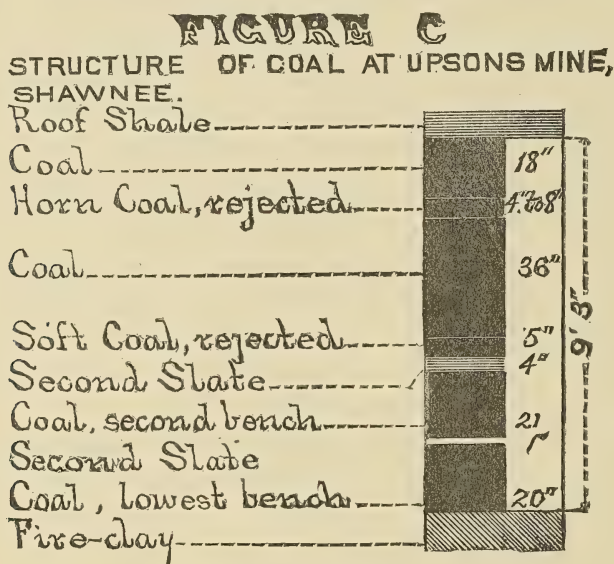 FIGURE C
STRUCTURE OF COAL AT UPSONS MINE,
SHAWNEE.
Roof Shale
Coal 18"
Horn Coal, rejected 4" to 8"
Coal 36"
Soft Coal, rejected 5"
Second Slate 4"
Coal, second bench 21
Second Slate 1"
Coal, lowest bench 20"
Fire-clay
9' 3"